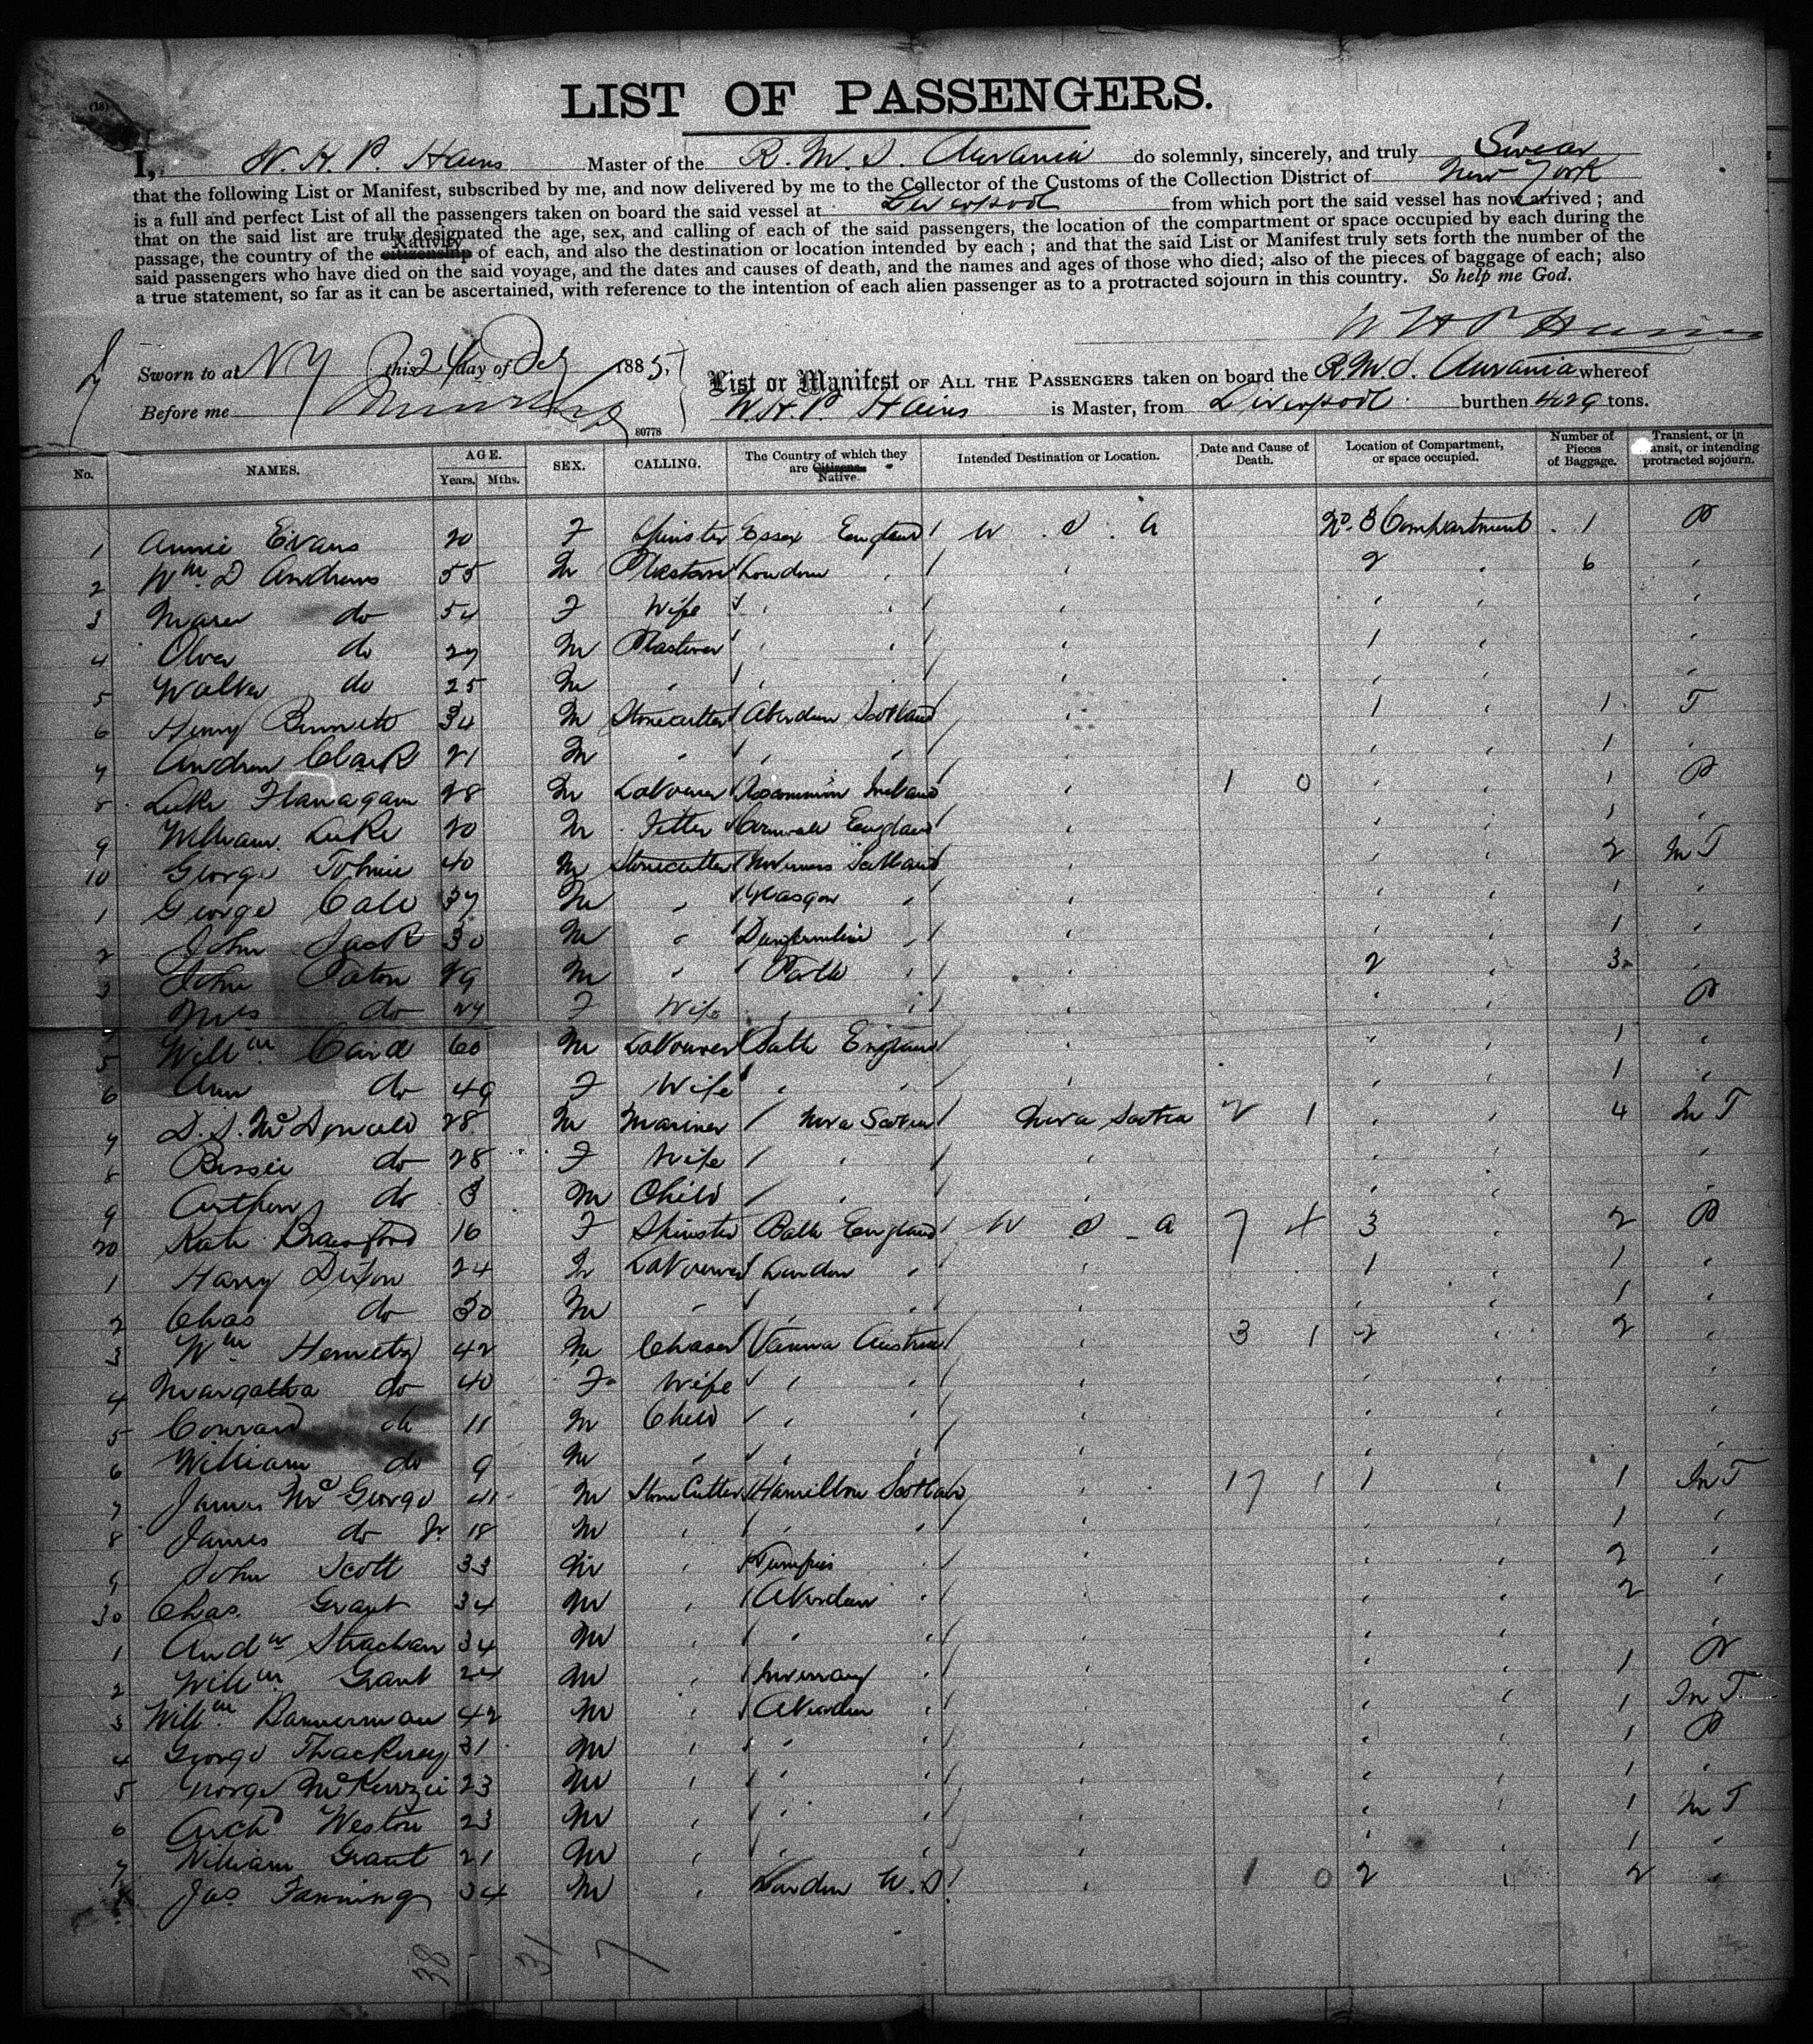 (18)
LIST OF PASSENGERS.
I, W. H. P. Hains Master of the R. M. S. Aurania do solemnly, sincerely, and truly Swear
that the following List or Manifest, subscribed by me, and now delivered by me to the Collector of the Customs of the Collection District of New York
is a full and perfect List of all the passengers taken on board the said vessel at Liverpool from which port the said vessel has now arrived; and
that on the said list are truly designated the age, sex, and calling of each of the said passengers, the location of the compartment or space occupied by each during the
passage, the country of the citizenship Nativity of each, and also the destination or location intended by each; and that the said List or Manifest truly sets forth the number of the
said passengers who have died on the said voyage, and the dates and causes of death, and the names and ages of those who died; also of the pieces of baggage of each; also
a true statement, so far as it can be ascertained, with reference to the intention of each alien passenger as to a protracted sojourn in this country. So help me God.
W H P Hains
Sworn to at N Y this 24 day of 1885,
Before me
80778
List or Manifest OF ALL THE PASSENGERS taken on board the R.M.S. Aurania whereof
W. H. P. Hains is Master, from Liverpool burthen 4029 tons.
No. NAMES. AGE. Years. Mths. SEX. CALLING. The Country of which they are Citizens. Native. Intended Destination or Location. Date and Cause of Death. Location of Compartment, or space occupied. Number of Pieces of Baggage. Transient, or in transit, or intending protracted sojourn.
1 Annie Evans 20 F Spinster Essex England U. S. A No. 3 Compartment 1 P
2 Wm D Andrews 55 M Plasterer London " " 2 " 6 "
3 do 54 F Wife " " " " " "
4 do 27 M Plasterer " " " 1 " "
5 Walter do 25 M " " " " " " "
6 Henry Bennett 34 M Stonecutter Aberdeen Scotland " 1 " 1 T
7 Andrew Clark 21 M " " " " " " 1 "
8 Luke Flanagan 28 M Labourer Roscommon Ireland " 1 0 " " 1 P
9 William Luke 20 M Fitter Cornwall England " " " 1 "
10 George Tolmie 40 M Stonecutter Inverness Scotland " " " 2 In T
1 George Cale 37 M " Glasgow " " " " 1 "
2 John Jack 30 M " Dunfermline " " " " 1 "
3 John Paton 29 M " Perth " " 2 " 3 "
Mrs do 27 F Wife " " " " " P
5 Willm Caird 60 M Labourer Bath England " " " 1 "
6 Ann do 49 F Wife " " " " " 1 "
7 D. S. McDonald 28 M Mariner Nova Scotia Nova Scotia 2 1 " " 4 In T
8 Bessie do 28 F Wife " " " " "
9 Arthur do 3 M Child " " " " "
20 Kate 16 F Spinster Bath England U S A 7 4 3 " 2 P
1 Harry Dixon 24 M Labourer London " " 1 " 1 "
2 Chas do 30 M " " " " " " 1 "
3 Wm 42 M Vienna Austria " 3 1 2 " 2 "
4 Margatha do 40 F Wife " " " " " "
5 Conrad do 11 M Child " " " " " "
6 William do 9 M " " " " " " "
7 James McGeorge 41 M Stone Cutter Hamilton Scotland " 17 1 1 " 1 In T
8 James do Jr 18 M " " " " " " 1 "
9 John Scott 33 M " Dumfries " " " " 2 "
30 Chas. Grant 34 M " Aberdeen " " " " 2 "
1 Andw Strachan 34 M " " " " " " "
2 Willm Grant 24 M " Inveraray " " " " 1 P
3 Willm Bannerman 42 M " Aberdeen " " " " 1 In T
4 George Thackeray 31 M " " " " " 1 P
5 George McKenzie 23 M " " " " " " 1 "
6 Archd Weston 23 M " " " " " 1 In T
7 William Grant 21 M " " " " " 1 "
Jas Fanning 34 M " U. S. " 1 0 2 " 2 "
38 31 7